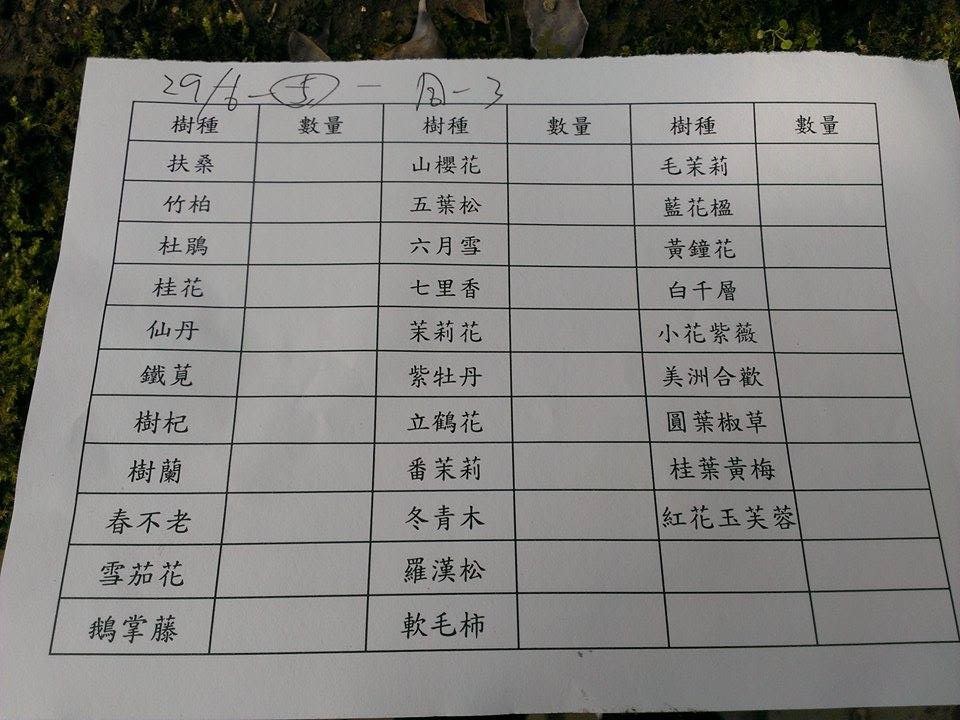 29/6-5 - 周-3
樹種 數量 樹種 數量 樹種 數量
扶桑 山櫻花 毛茉莉
竹柏 五葉松 藍花楹
杜鵑 六月雪 黃鐘花
桂花 七里香 白千層
仙丹 茉莉花 小花紫薇
鐵莧 紫牡丹 美洲合歡
樹杞 立鶴花 圓葉椒草
樹蘭 番茉莉 桂葉黃梅
春不老 冬青木 紅花玉芙蓉
雪茄花 羅漢松
鵝掌藤 軟毛柿